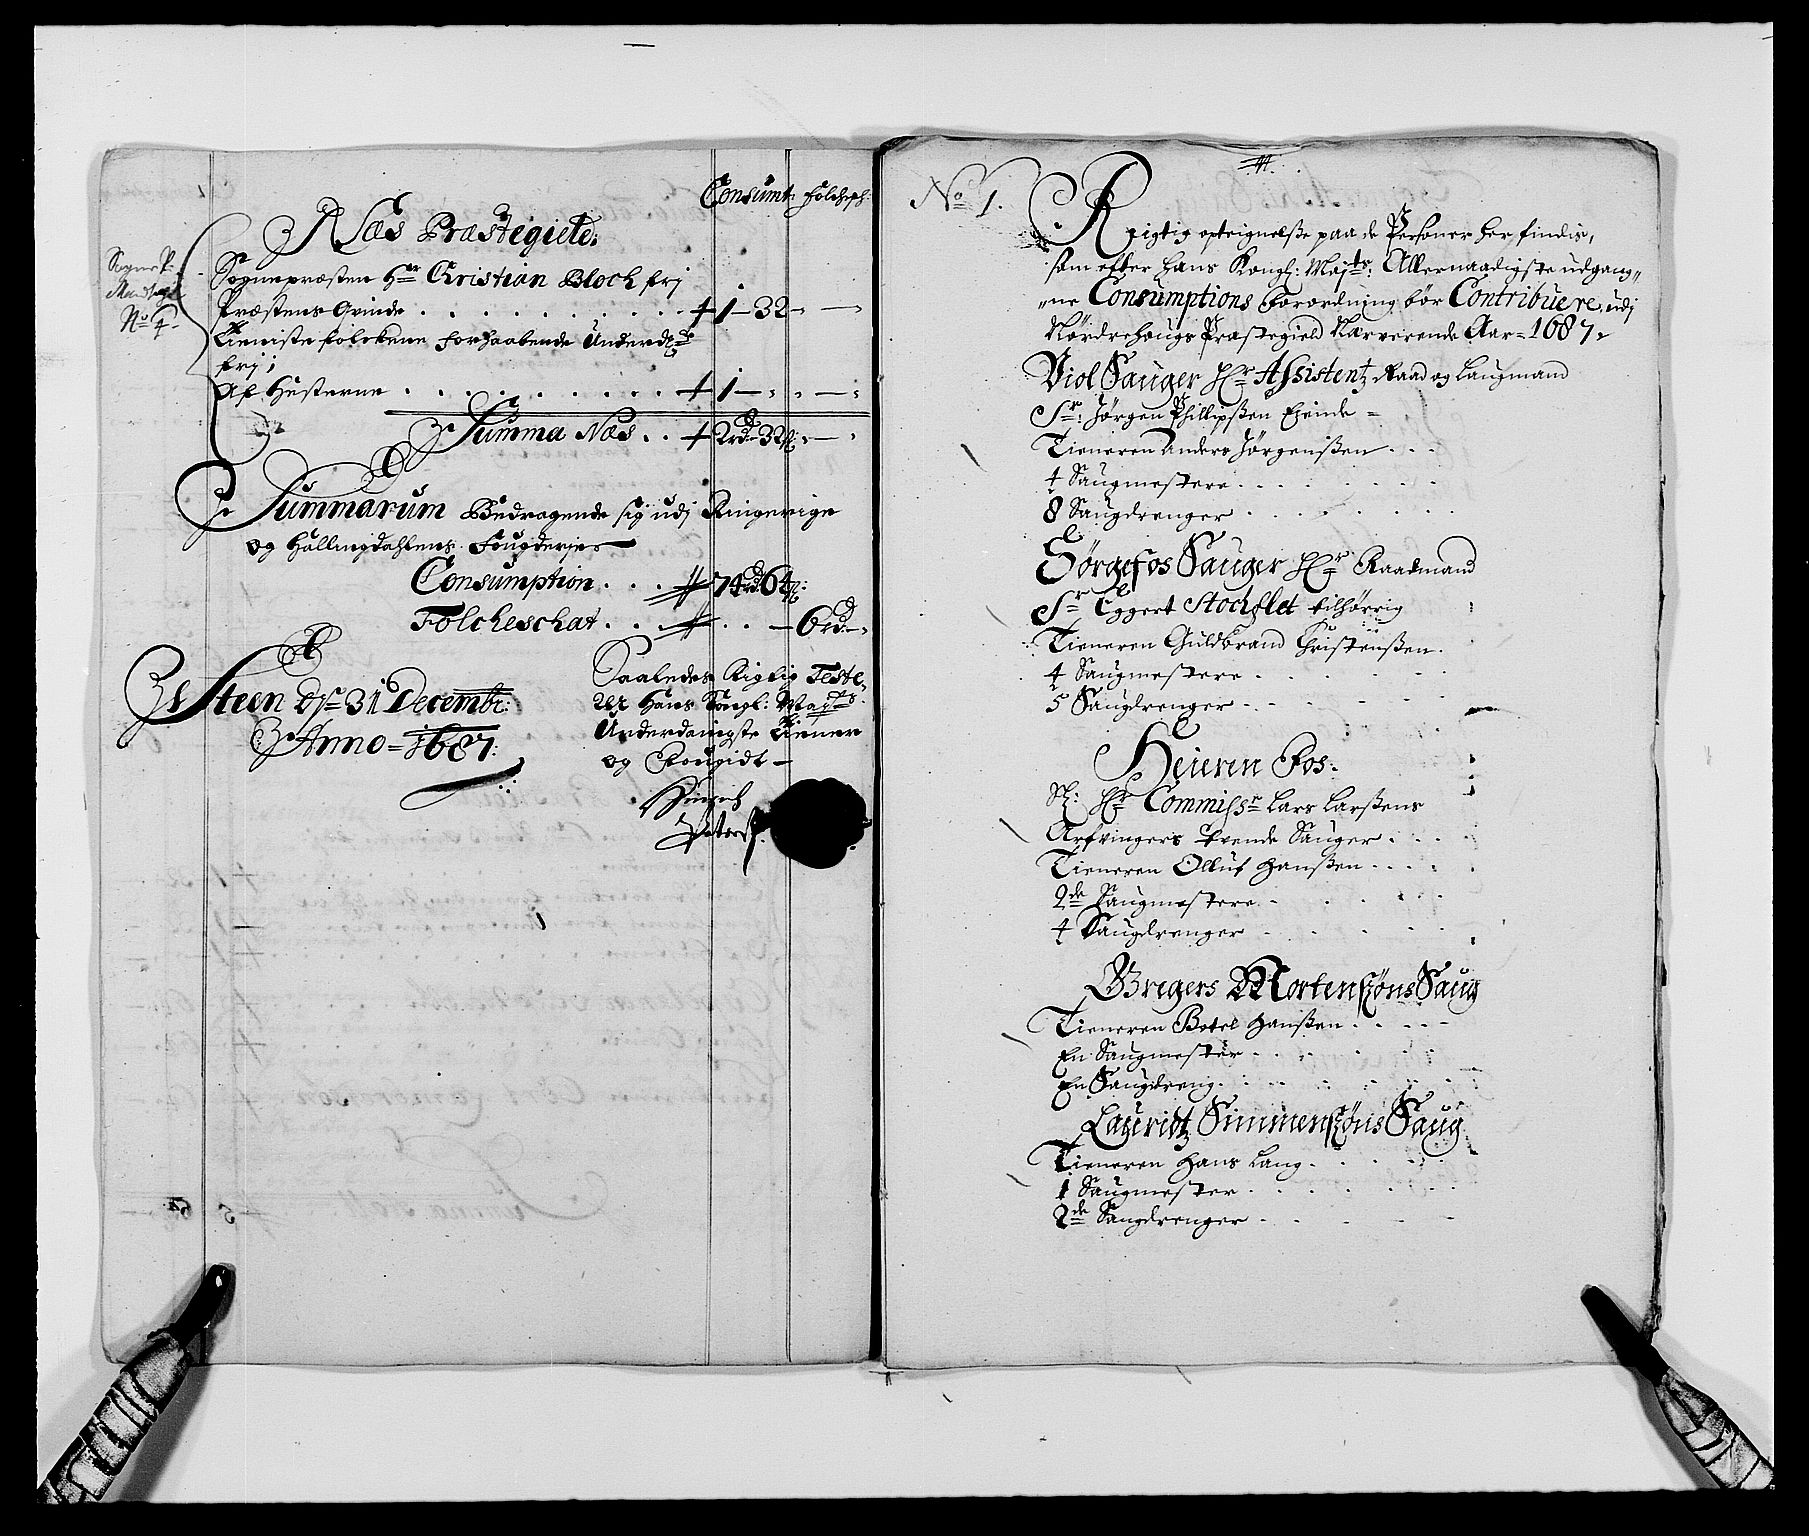 Consumt: Folchsch:
Næs Præstegield:
Sogne P:
Mandtal
No 4.
Sognepræsten Hr Christian Bloch frj
Præstens Qvinde . . . . . . . . . 1 — 32 — —
Tieniste folckene forhaabende Underdst
frj;
Af Hesterne . . . . . . . . 1 — —
Summa Næs . . 2 rd 32 s: —
Summarum Bedragende sig udj Ringerige
og Hallingdahlens Fougderje
Consumption . . . 74 rd 64 s:
Folcheschat . . . . . — 6 rd —
Steen d: 31 Decembr:
Anno = 1687:
Saaledes Rigtig Teste-
rer Hans Kongl: Mayts
Underdanigste Tiener
og Fougidt —
Hinrich
Peters
No 1.
Rigtig opteignelsse paa de Personer her findis,
som efter Hans Kongl: Mayts: Allernaadigste udgang-
ne Consumptions Forordning bör Contribuere, udj
Nørdrehougs Præstegield Nærverende Aar = 1687.
Viol Sauger Hr Assistentz Raad og Laugmand
Sr: Jørgen Phillipssen Eyende =
Tieneren Anders Jørgenssen . . .
4 Saugmestere . . . . . .
8 Saugdrenger . . . . . .
Hörgefos Sauger Hr Raadmand
Sr Eggert Stochflet tilhørrig
Tieneren Guldbrand Christenssen.
4 Saugmestere . . . . .
5 Saugdrenger . . . . .
Heieren Fos.
Sl: Hr Commissr Lars Larssens
Arfvingers tvende Sauger . . .
Tieneren Olluf Hanssen . . . .
2de Saugmestere . . . . .
4 Saugdrenger . . . . .
Gregers Mortensöns Saug
Tieneren Botel Hanssen . . . . .
En Saugmester . . . . .
En Saugdreng . . . . . .
Lauridtz Simmensöns Saug
Tieneren Hans Lang . . . . .
1 Saugmester . . . . .
2de Saugdrenger . . . .